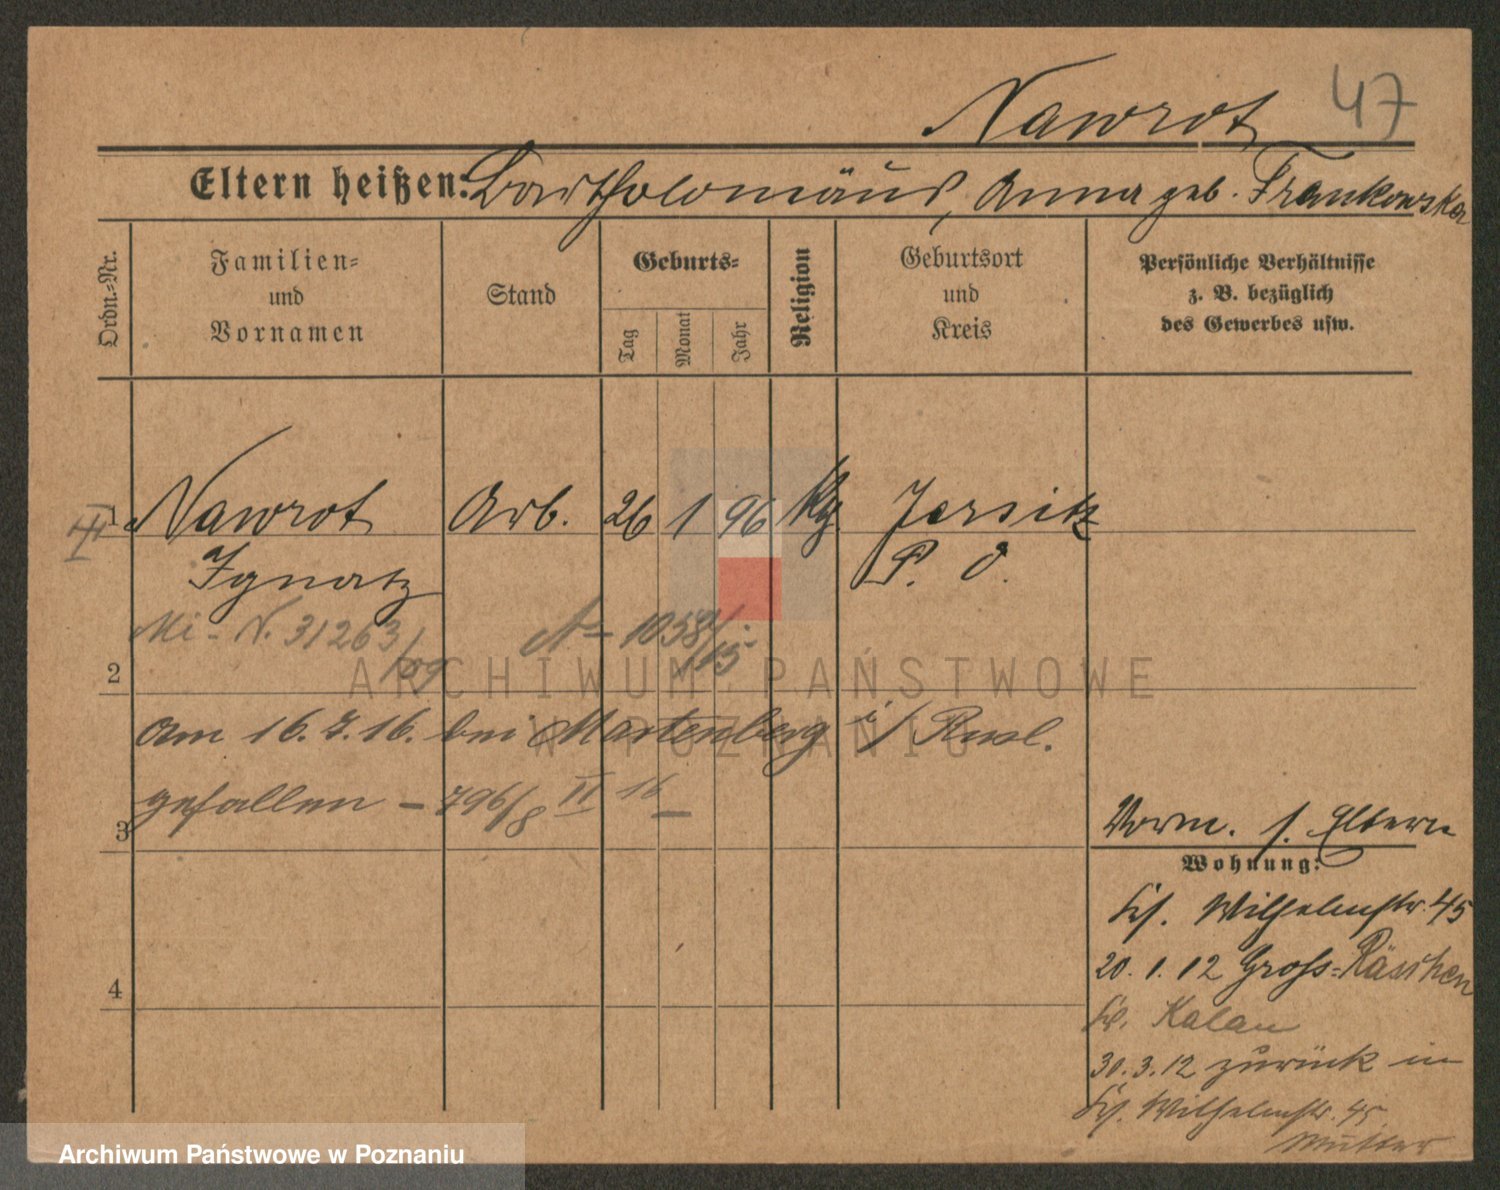 Nawrot 47
Eltern heißen: Bartholomäus, Anna geb. Frankowska
Ordn.-Nr.
Familien-
und
Vornamen
Stand
Geburts-
Tag
Monat
Jahr
Religion
Geburtsort
und
Kreis
Persönliche Verhältnisse
z. B. bezüglich
des Gewerbes usw.
1 Nawrot Arb. 26 1 96 Kg Jersitz
Ignatz P. O.
Mi - N. 31263/09 A - 1058/15
2
am 16.7.16. bei Martenberg i/Rusl.
gefallen - 796/8 II 16 -
3
Vorm. s. Eltern
Wohnung:
Wilhelmstr. 45
20. 1. 12 Gross-Räschen
Kr. Kalau
30. 3. 12 zurück in
Wilhelmstr. 45
Mutter
4
ARCHIWUM PAŃSTWOWE
W POZNANIU
Archiwum Państwowe w Poznaniu